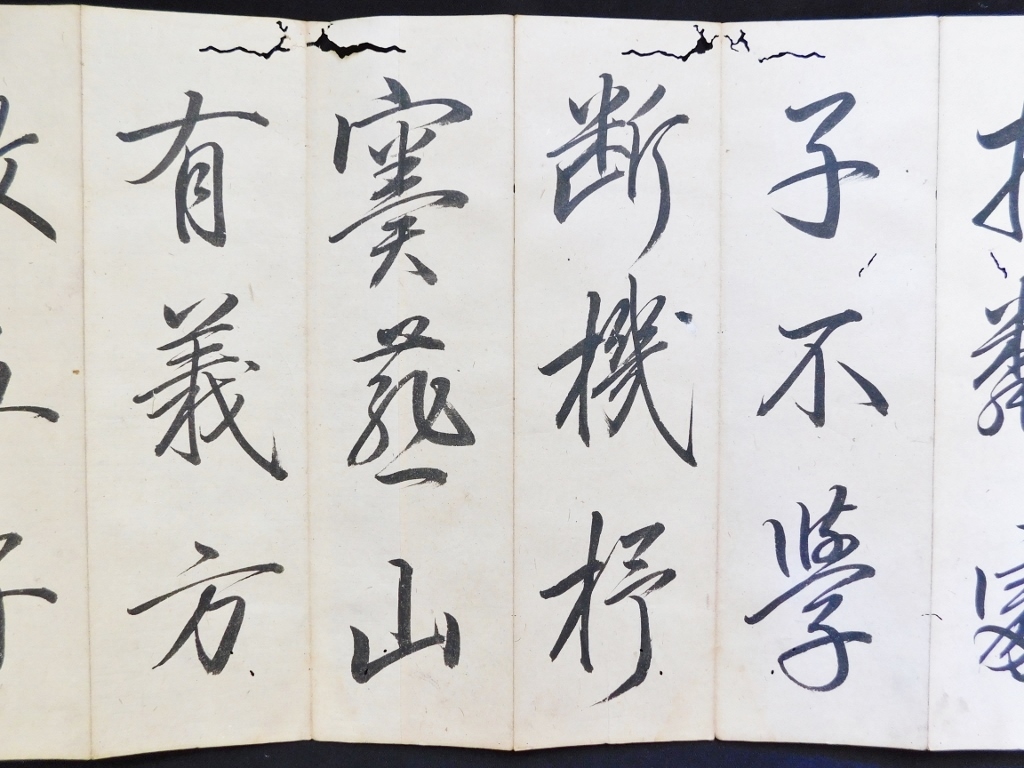 子不學
断機杼
竇燕山
有義方